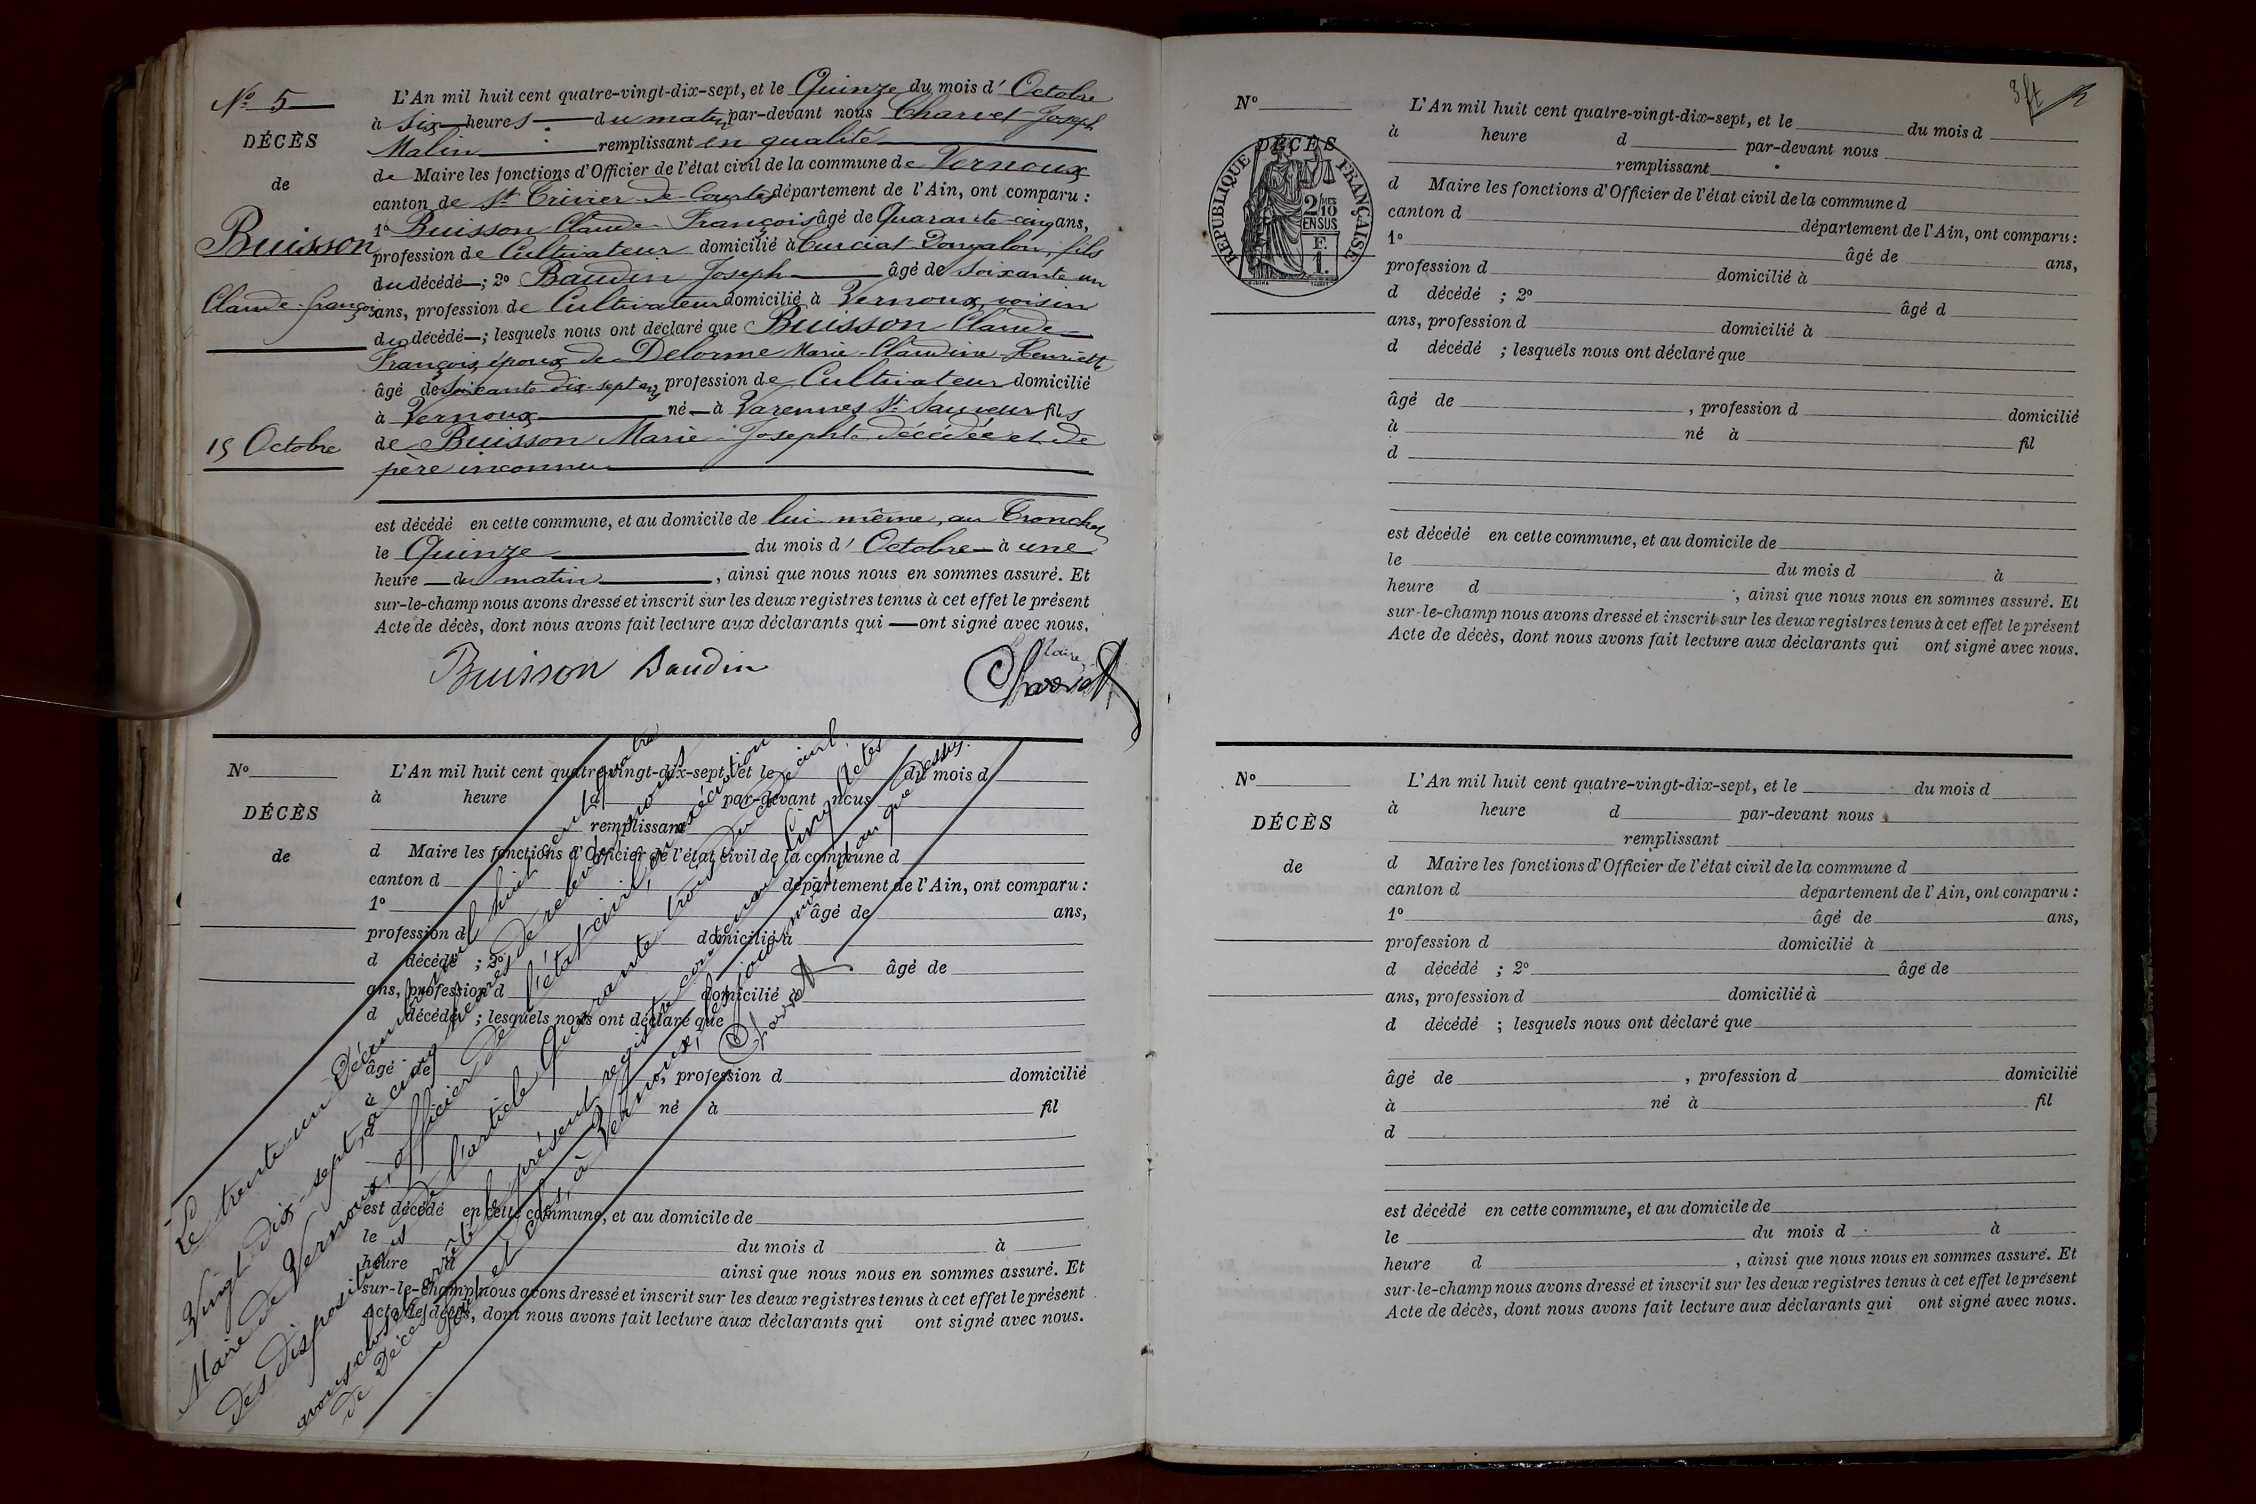 Nº 5
DÉCÈS
de
Buisson
Claude-François
15 Octobre
L'An mil huit cent quatre-vingt-dix-sept, et le Quinze du mois d'Octobre
à six heures du matin par-devant nous Charvet Joseph
Malin remplissant en qualité
de Maire les fonctions d'Officier de l'état civil de la commune de Vernoux
canton de St Trivier-de-Courtes département de l'Ain, ont comparu :
1º Buisson Claude-François âgé de Quarante-cinq ans,
profession de Cultivateur domicilié à Curciat-Dongalon, fils
du décédé ; 2º Baudin Joseph âgé de soixante un
ans, profession de Cultivateur domicilié à Vernoux, voisin
du décédé ; lesquels nous ont déclaré que Buisson Claude-
François, époux de Delorme Marie-Claudine-Henriette
âgé de soixante-dix-sept ans, profession de Cultivateur domicilié
à Vernoux né à Varennes St Sauveur fils
de Buisson Marie-Josephte décédée et de
père inconnu
est décédé en cette commune, et au domicile de lui-même, au Tronchet
le Quinze du mois d'Octobre à une
heure du matin, ainsi que nous nous en sommes assuré. Et
sur-le-champ nous avons dressé et inscrit sur les deux registres tenus à cet effet le présent
Acte de décès, dont nous avons fait lecture aux déclarants qui ont signé avec nous.
Le Maire,
Buisson Baudin Charvet
Nº
DÉCÈS
de
L'An mil huit cent quatre-vingt-dix-sept, et le du mois d
à heure d par-devant nous
remplissant
d Maire les fonctions d'Officier de l'état civil de la commune d
canton d département de l'Ain, ont comparu :
1º âgé de ans,
profession d domicilié à
d décédé ; 2º âgé de
ans, profession d domicilié à
d décédé ; lesquels nous ont déclaré que
âgé de , profession d domicilié
à né à fil
d
est décédé en cette commune, et au domicile de
le du mois d à
heure d ainsi que nous nous en sommes assuré. Et
sur-le-champ nous avons dressé et inscrit sur les deux registres tenus à cet effet le présent
Acte de décès, dont nous avons fait lecture aux déclarants qui ont signé avec nous.
Le trente un Décembre mil huit cent quatre
Vingt-dix-sept, à cinq heures de relevé, nous
Maire de Vernoux, officier de l'état civil, en exécution
des dispositions de l'article Quarante trois du code civil,
avons clos et arrêté le présent registre contenant Cinq Actes
de Décès et ce, à Vernoux, les jour, mois et an que dessus.
Charvet
Nº
DÉCÈS
RÉPUBLIQUE FRANÇAISE
2/10
EN SUS
F.
1.
L'An mil huit cent quatre-vingt-dix-sept, et le du mois d
à heure d par-devant nous
remplissant
d Maire les fonctions d'Officier de l'état civil de la commune d
canton d département de l'Ain, ont comparu :
1º âgé de ans,
profession d domicilié à
d décédé ; 2º âgé d
ans, profession d domicilié à
d décédé ; lesquels nous ont déclaré que
âgé de , profession d domicilié
à né à fil
d
est décédé en cette commune, et au domicile de
le du mois d à
heure d , ainsi que nous nous en sommes assuré. Et
sur-le-champ nous avons dressé et inscrit sur les deux registres tenus à cet effet le présent
Acte de décès, dont nous avons fait lecture aux déclarants qui ont signé avec nous.
Nº
DÉCÈS
de
L'An mil huit cent quatre-vingt-dix-sept, et le du mois d
à heure d par-devant nous
remplissant
d Maire les fonctions d'Officier de l'état civil de la commune d
canton d département de l'Ain, ont comparu :
1º âgé de ans,
profession d domicilié à
d décédé ; 2º âge de
ans, profession d domicilié à
d décédé ; lesquels nous ont déclaré que
âgé de , profession d domicilié
à né à fil
d
est décédé en cette commune, et au domicile de
le du mois d à
heure d , ainsi que nous nous en sommes assuré. Et
sur-le-champ nous avons dressé et inscrit sur les deux registres tenus à cet effet le présent
Acte de décès, dont nous avons fait lecture aux déclarants qui ont signé avec nous.